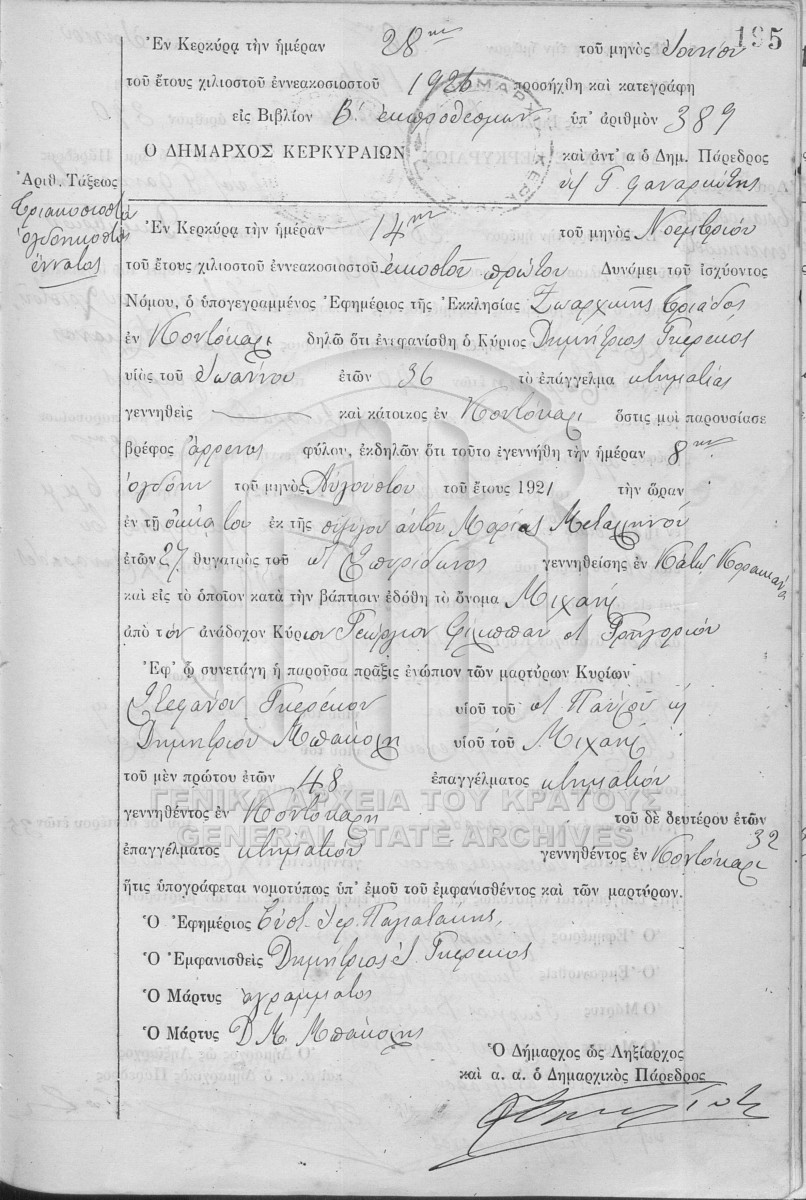 195
Ἐν Κερκύρᾳ τὴν ἡμέραν 28ην τοῦ μηνὸς Ἰουνίου
τοῦ ἔτους χιλιοστοῦ ἐννεακοσιοστοῦ 1926 προσήχθη καὶ κατεγράφη
εἰς Βιβλίον Β' ἐκπροθέσμων ὑπ' ἀριθμὸν 389
Ο ΔΗΜΑΡΧΟΣ ΚΕΡΚΥΡΑΙΩΝ καὶ ἀντ' α ὁ Δημ. Πάρεδρος
Ἀριθ. Τάξεως
Τριακοσιοστὸς
ὀγδοηκοστὸς
ἔννατος
Ἐν Κερκύρᾳ τὴν ἡμέραν 14ην τοῦ μηνὸς Νοεμβρίου
τοῦ ἔτους χιλιοστοῦ ἐννεακοσιοστοῦ εἰκοστοῦ πρώτου Δυνάμει τοῦ ἰσχύοντος
Νόμου, ὁ ὑπογεγραμμένος Ἐφημέριος τῆς Ἐκκλησίας Ζωαρχικῆς Τριάδος
ἐν Κοντόκαλι δηλῶ ὅτι ἐνεφανίσθη ὁ Κύριος Δημήτριος Γκερέκος
υἱὸς τοῦ Ἰωάννου ἐτῶν 36 τὸ ἐπάγγελμα κτηματίας
γεννηθεὶς καὶ κάτοικος ἐν Κοντόκαλι ὅστις μοὶ παρουσίασε
βρέφος ἄρρενος φύλου, ἐκδηλῶν ὅτι τοῦτο ἐγεννήθη τὴν ἡμέραν 8ην
ὀγδόην τοῦ μηνὸς Αὐγούστου τοῦ ἔτους 1921 τὴν ὥραν
ἐν τῇ οἰκίᾳ του ἐκ τῆς συζύγου αὐτοῦ Μαρίας Μεταλληνοῦ
ἐτῶν 27 θυγατρὸς τοῦ Σπυρίδωνος γεννηθείσης ἐν Κάτω Κορακιάνα
καὶ εἰς τὸ ὁποῖον κατὰ τὴν βάπτισιν ἐδόθη τὸ ὄνομα Μιχαήλ
ἀπὸ τὸν ἀνάδοχον Κύριον Γεώργιον Γρηγορίου
Ἐφ' ᾧ συνετάγη ἡ παροῦσα πρᾶξις ἐνώπιον τῶν μαρτύρων Κυρίων
Στεφάνου Γκερέκου υἱοῦ τοῦ Παύλου
Δημητρίου Μπακόλη υἱοῦ τοῦ Μιχαήλ
τοῦ μὲν πρώτου ἐτῶν 48 ἐπαγγέλματος κτηματίου
ΓΕΝΙΚΑ ΑΡΧΕΙΑ ΤΟΥ ΚΡΑΤΟΥΣ
γεννηθέντος ἐν Κοντόκαλη τοῦ δὲ δευτέρου ἐτῶν 32
GENERAL STATE ARCHIVES
ἐπαγγέλματος κτηματίου γεννηθέντος ἐν Κοντόκαλι
ἥτις ὑπογράφεται νομοτύπως ὑπ' ἐμοῦ τοῦ ἐμφανισθέντος καὶ τῶν μαρτύρων.
Ὁ Ἐφημέριος
Ὁ Ἐμφανισθεὶς Δημήτριος Γκερέκος
Ὁ Μάρτυς ἀγράμματος
Ὁ Μάρτυς Δ Μ. Μπακόλης
Ὁ Δήμαρχος ὡς Ληξίαρχος
καὶ α. α. ὁ Δημαρχικὸς Πάρεδρος